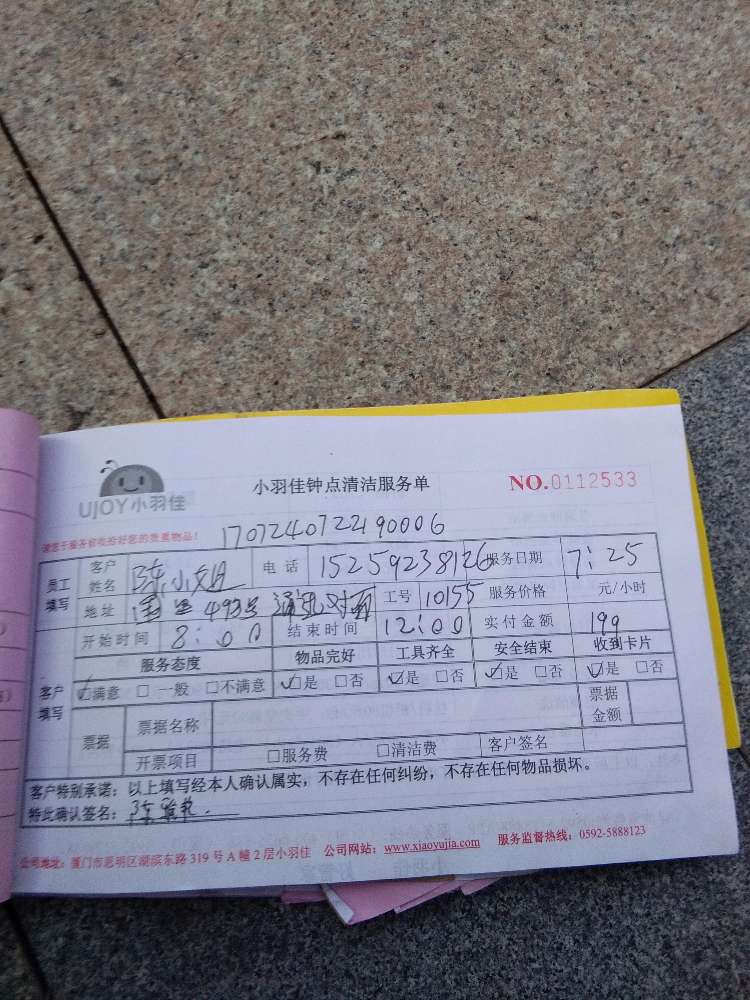 UJOY小羽佳
小羽佳钟点清洁服务单
NO.0112533
请您于服务前收拾好您的贵重物品!
1707240722190006
员工填写
客户姓名 陈小姐 电话 15259238126 服务日期 7:25
地址 493号 对面 工号 10155 服务价格 元/小时
开始时间 8:00 结束时间 12:00 实付金额 199
客户填写
服务态度 物品完好 工具齐全 安全结束 收到卡片
☑满意 □一般 □不满意 ☑是 □否 ☑是 □否 ☑是 □否 ☑是 □否
票据 票据名称 票据金额
开票项目 □服务费 □清洁费 客户签名
客户特别承诺:以上填写经本人确认属实,不存在任何纠纷,不存在任何物品损坏。
特此确认签名:陈
公司地址:厦门市思明区湖滨东路319号A幢2层小羽佳 公司网站:www.xiaoyujia.com 服务监督热线:0592-5888123